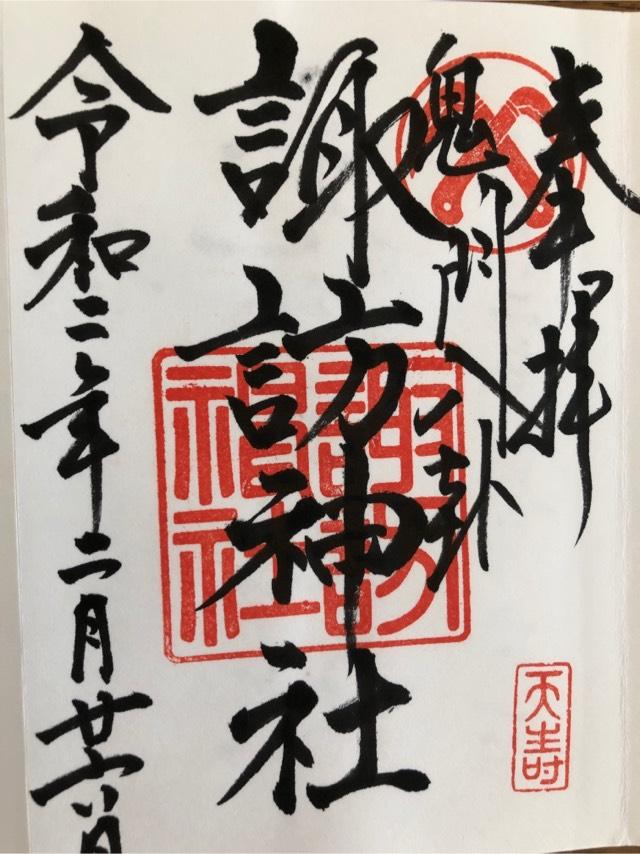 奉拝
鬼門八卦
諏訪神社
諏訪
神社
令和二年二月廿六日